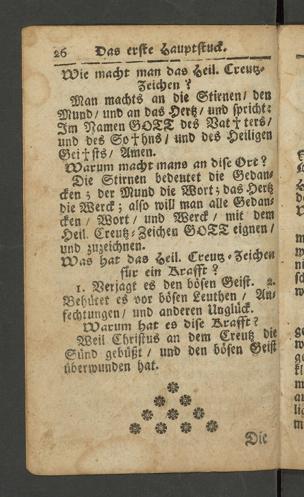 26 Das erste Hauptstuck.
Wie macht man das Heil. Creutz-
Zeichen?
Man machts an die Stirnen / den
Mund / und an das Hertz / und spricht:
Im Namen GOTT des Vat † ters /
und des So † hns / und des Heiligen
Gei † sts / Amen.
Warum macht mans an dise Ort?
Die Stirnen bedeutet die Gedan-
cken; der Mund die Wort; das Hertz
die Werck; also will man alle Gedan-
cken / Wort / und Werck / mit dem
Heil. Creutz-Zeichen GOTT eignen /
und zuzeichnen.
Was hat das Heil. Creutz-Zeichen
für ein Krafft?
1. Verjagt es den bösen Geist. 2.
Behütet es vor bösen Leuthen / An-
fechtungen / und anderen Unglück.
Warum hat es dise Krafft?
Weil Christus an dem Creutz die
Sünd gebüßt / und den bösen Geist
überwunden hat.
Die